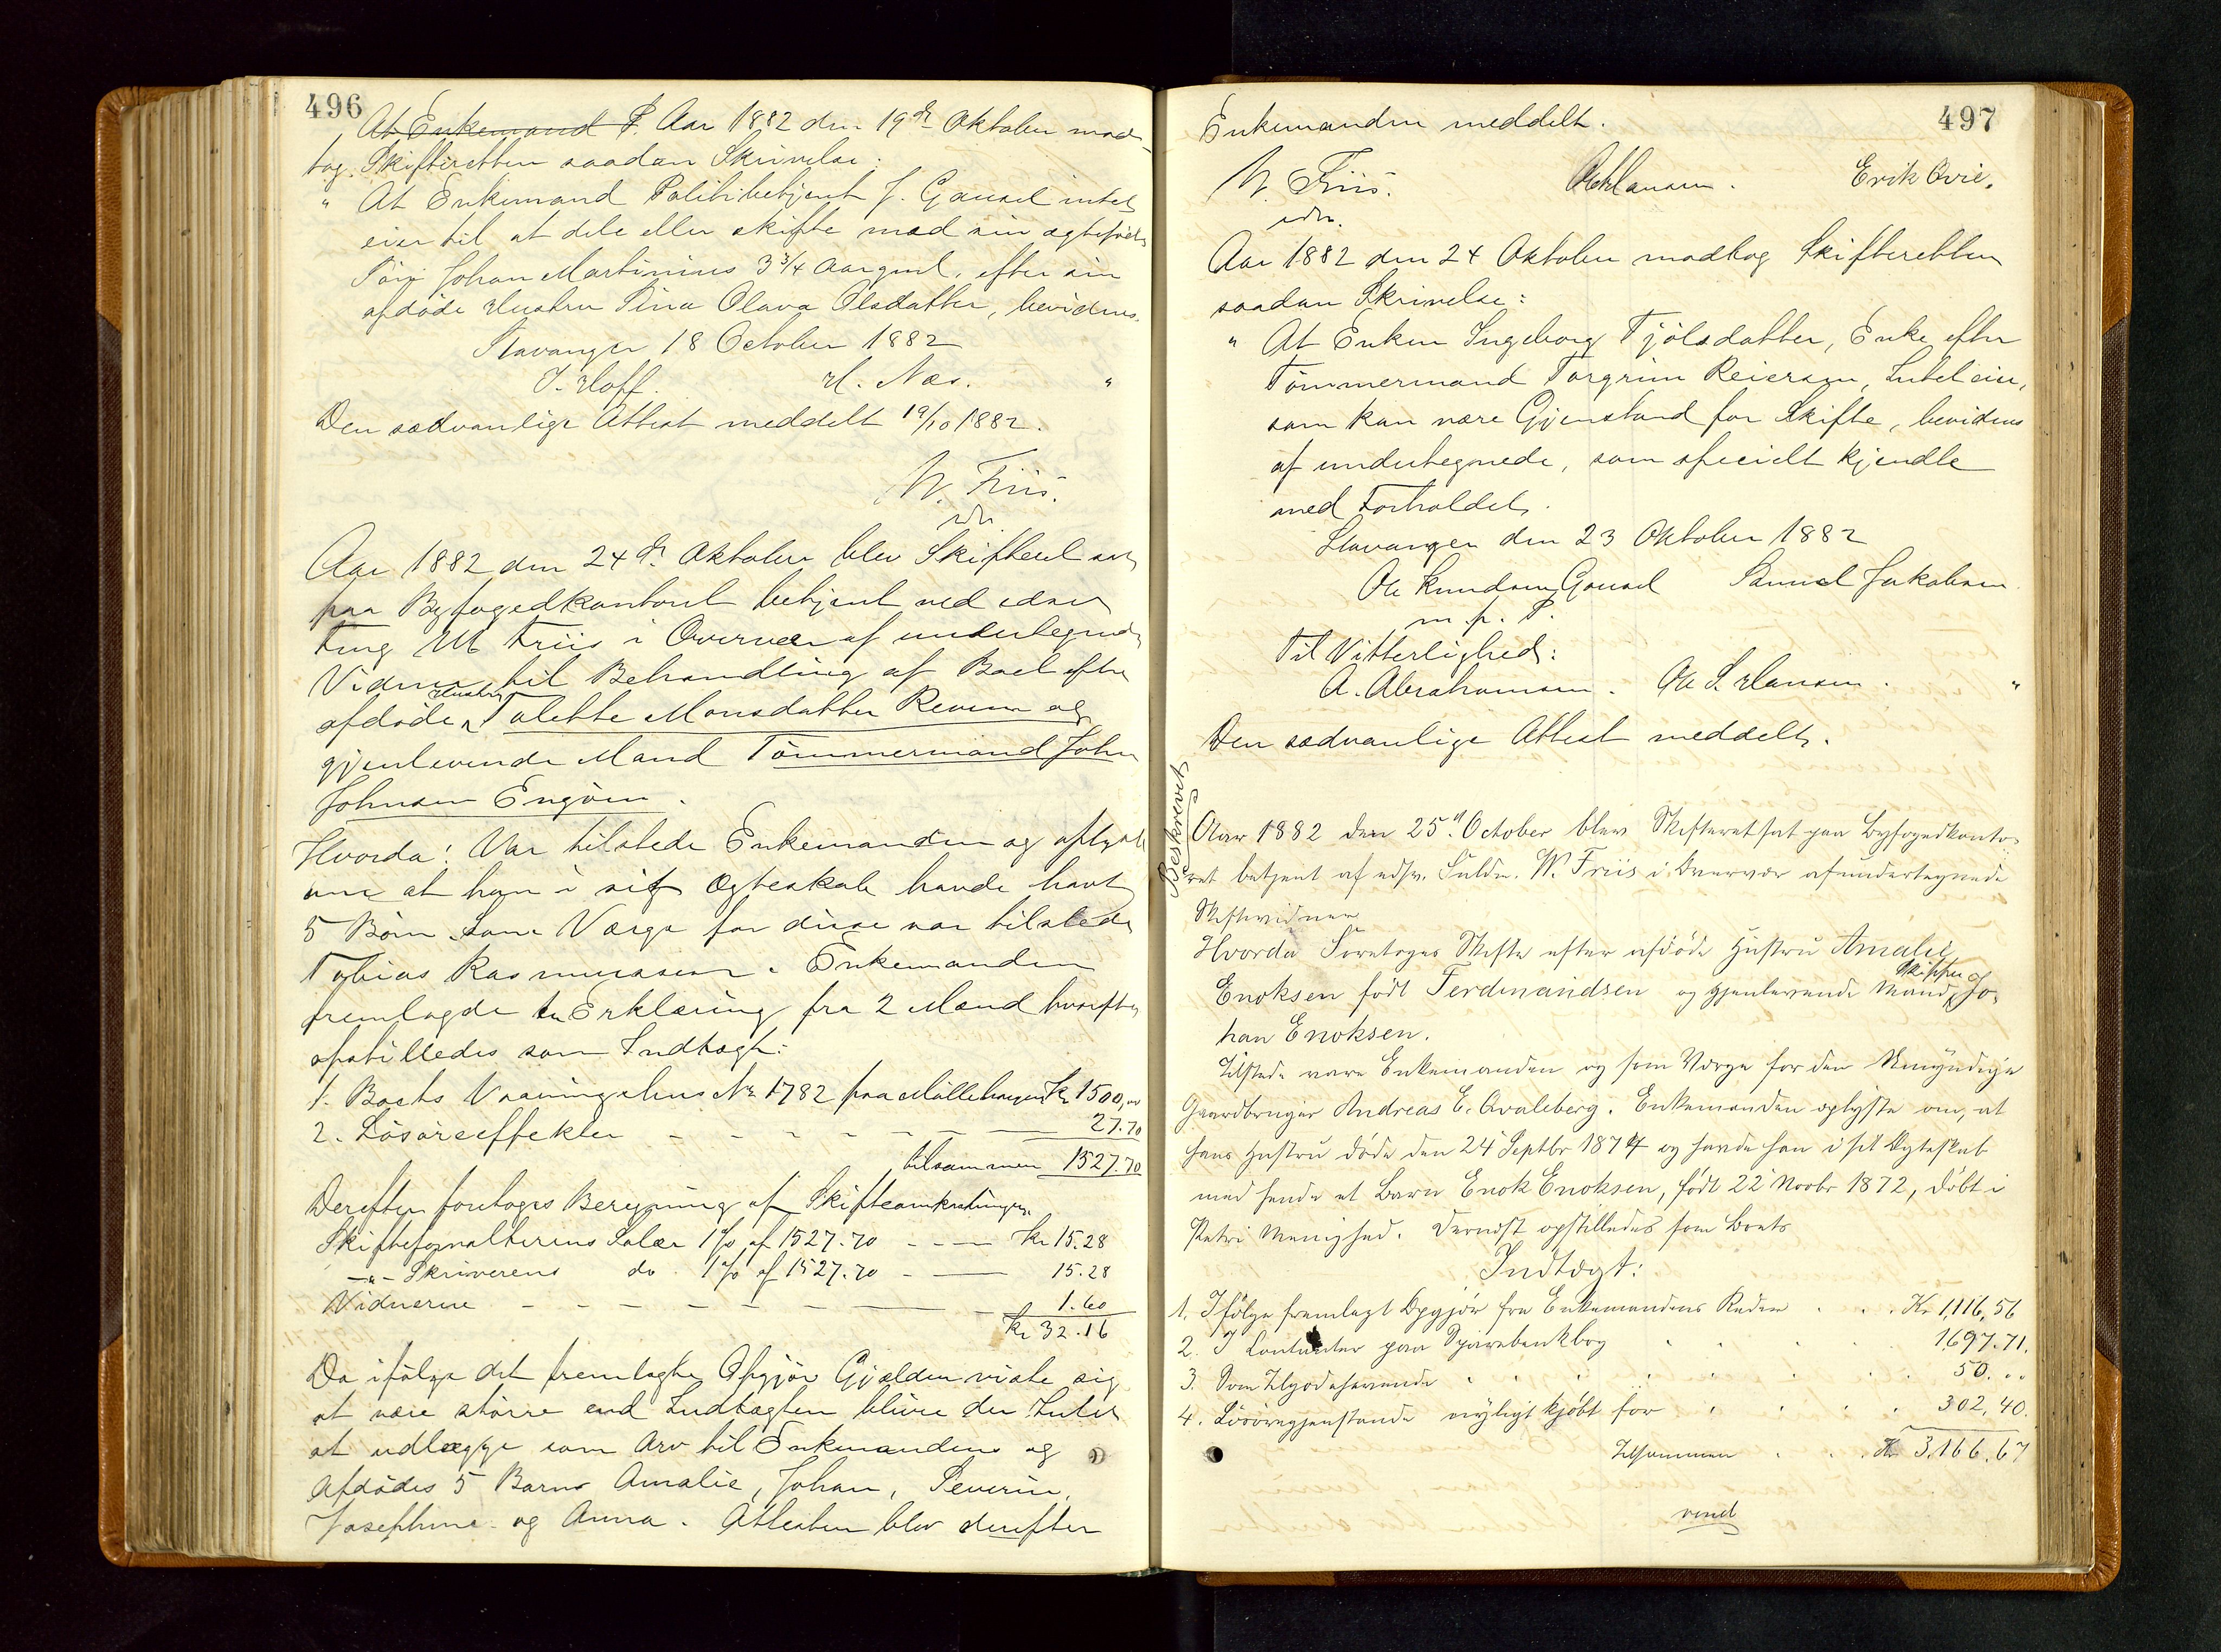 496
At Enkemand P. Aar 1882 den 19de Oktober mod-
tog Skifteretten saadan Skrivelse:
" At Enkemand Politibetjent J. Gausel intet
eier til at dele eller skifte med sin ægtefødte
Søn Johan Martinius 3 3/4 Aar gml. efter sin
afdøde Hustru Sina Olava Olsdatter, bevidnes.
Stavanger 18 October 1882
J. Hoff. H. Næs. "
Den sædvanlige Attest meddelt 19/10 1882.
W. Friis.
edsv.
Aar 1882 den 24de Oktober blev Skifteret sat
paa Byfogedkontoret betjent ved edsv
fmg W Friis i Overvær af undertegnede
Vidner til Behandling af Boet efter
afdøde Hustru Talette Monsdatter Revem og
gjenlevende Mand Tømmermand John
Johnsen Engøen.
Hvorda: Var tilstede Enkemanden og oplyste
om at han i sit Ægteskab havde havt
5 Børn. Som Værge for disse var tilstede
Tobias Rasmussen. Enkemanden
fremlagde en Erklæring fra 2 Mænd hvorefter
opstilledes som Indtægt:
1. Boets Vaaningshus No 1782 paa Møllehaugen Kr 1500,00
2. Løsøreeffekter 27.70
tilsammen 1527.70
Derefter foretoges Beregning af Skifteomkostninger.
Skifteforvalterens Salær 1% af 1527.70 - - - Kr 15.28
-"- Skriverens do. 1% af 1527.70 - 15.28
Vidnerne - - - - - 1.60
Kr 32.16
Da ifølge det fremlagte Opgjør Gjælden viste sig
at være større end Indtægten bliver der Intet
at udlægge som Arv til Enkemanden og
afdødes 5 Børn Amalie, Johan, Severin,
Josephine og Anna. Attesten blev derefter
497
Enkemanden meddelt.
W. Friis. Erik Qvie.
edsv.
Aar 1882 den 24 Oktober modtog Skifteretten
saadan Skrivelse:
" At Enken Ingeborg Tjølsdatter, Enke efter
Tømmermand Torgrim Reiersen, Intet eier,
som kan være Gjenstand for Skifte, bevidnes
af undertegnede, som specielt kjendte
med Forholdet.
Stavanger den 23 Oktober 1882
Ole Knudsen Gausel Samuel Jakobsen
m. p. P.
Til Vitterlighed:
A. Abrahamsen. Ole S. Hansen. "
Den sædvanlige Attest meddelt.
Beskrevet
Aar 1882 den 25de October blev Skifteret sat paa Byfogedkonto-
ret betjent af edsv. Fuldm. W. Friis i Overvær af undertegnede
Skiftevidner
Hvorda Foretoges Skifte efter afdøde Hustru Amalie
Enoksen født Ferdinandsen og gjenlevende Mand Skipper Jo-
han Enoksen.
Tilstede vare Enkemanden og som Værge for den Umyndige
Gaardbruger Andreas E. Qvaleberg. Enkemanden oplyste om, at
hans Hustru døde den 24 Septbr 1874 og havde han i sit Ægteskab
med hende et Barn Enok Enoksen, født 22 Novbr 1872, døbt i
Petri Menighed. Dernæst opstilledes som Boets
Indtægt:
1. Ifølge fremlagt Opgjør fra Enkemandens Reder . . . Kr 1,116,56
2. I Contanter paa Sparebankbog 1697.71.
3. Som Tilgodehavende 50. "
4. Løsøregjenstande nyligt kjøbt for 302,40.
Tilsammen . . . Kr 3,166.67
vend